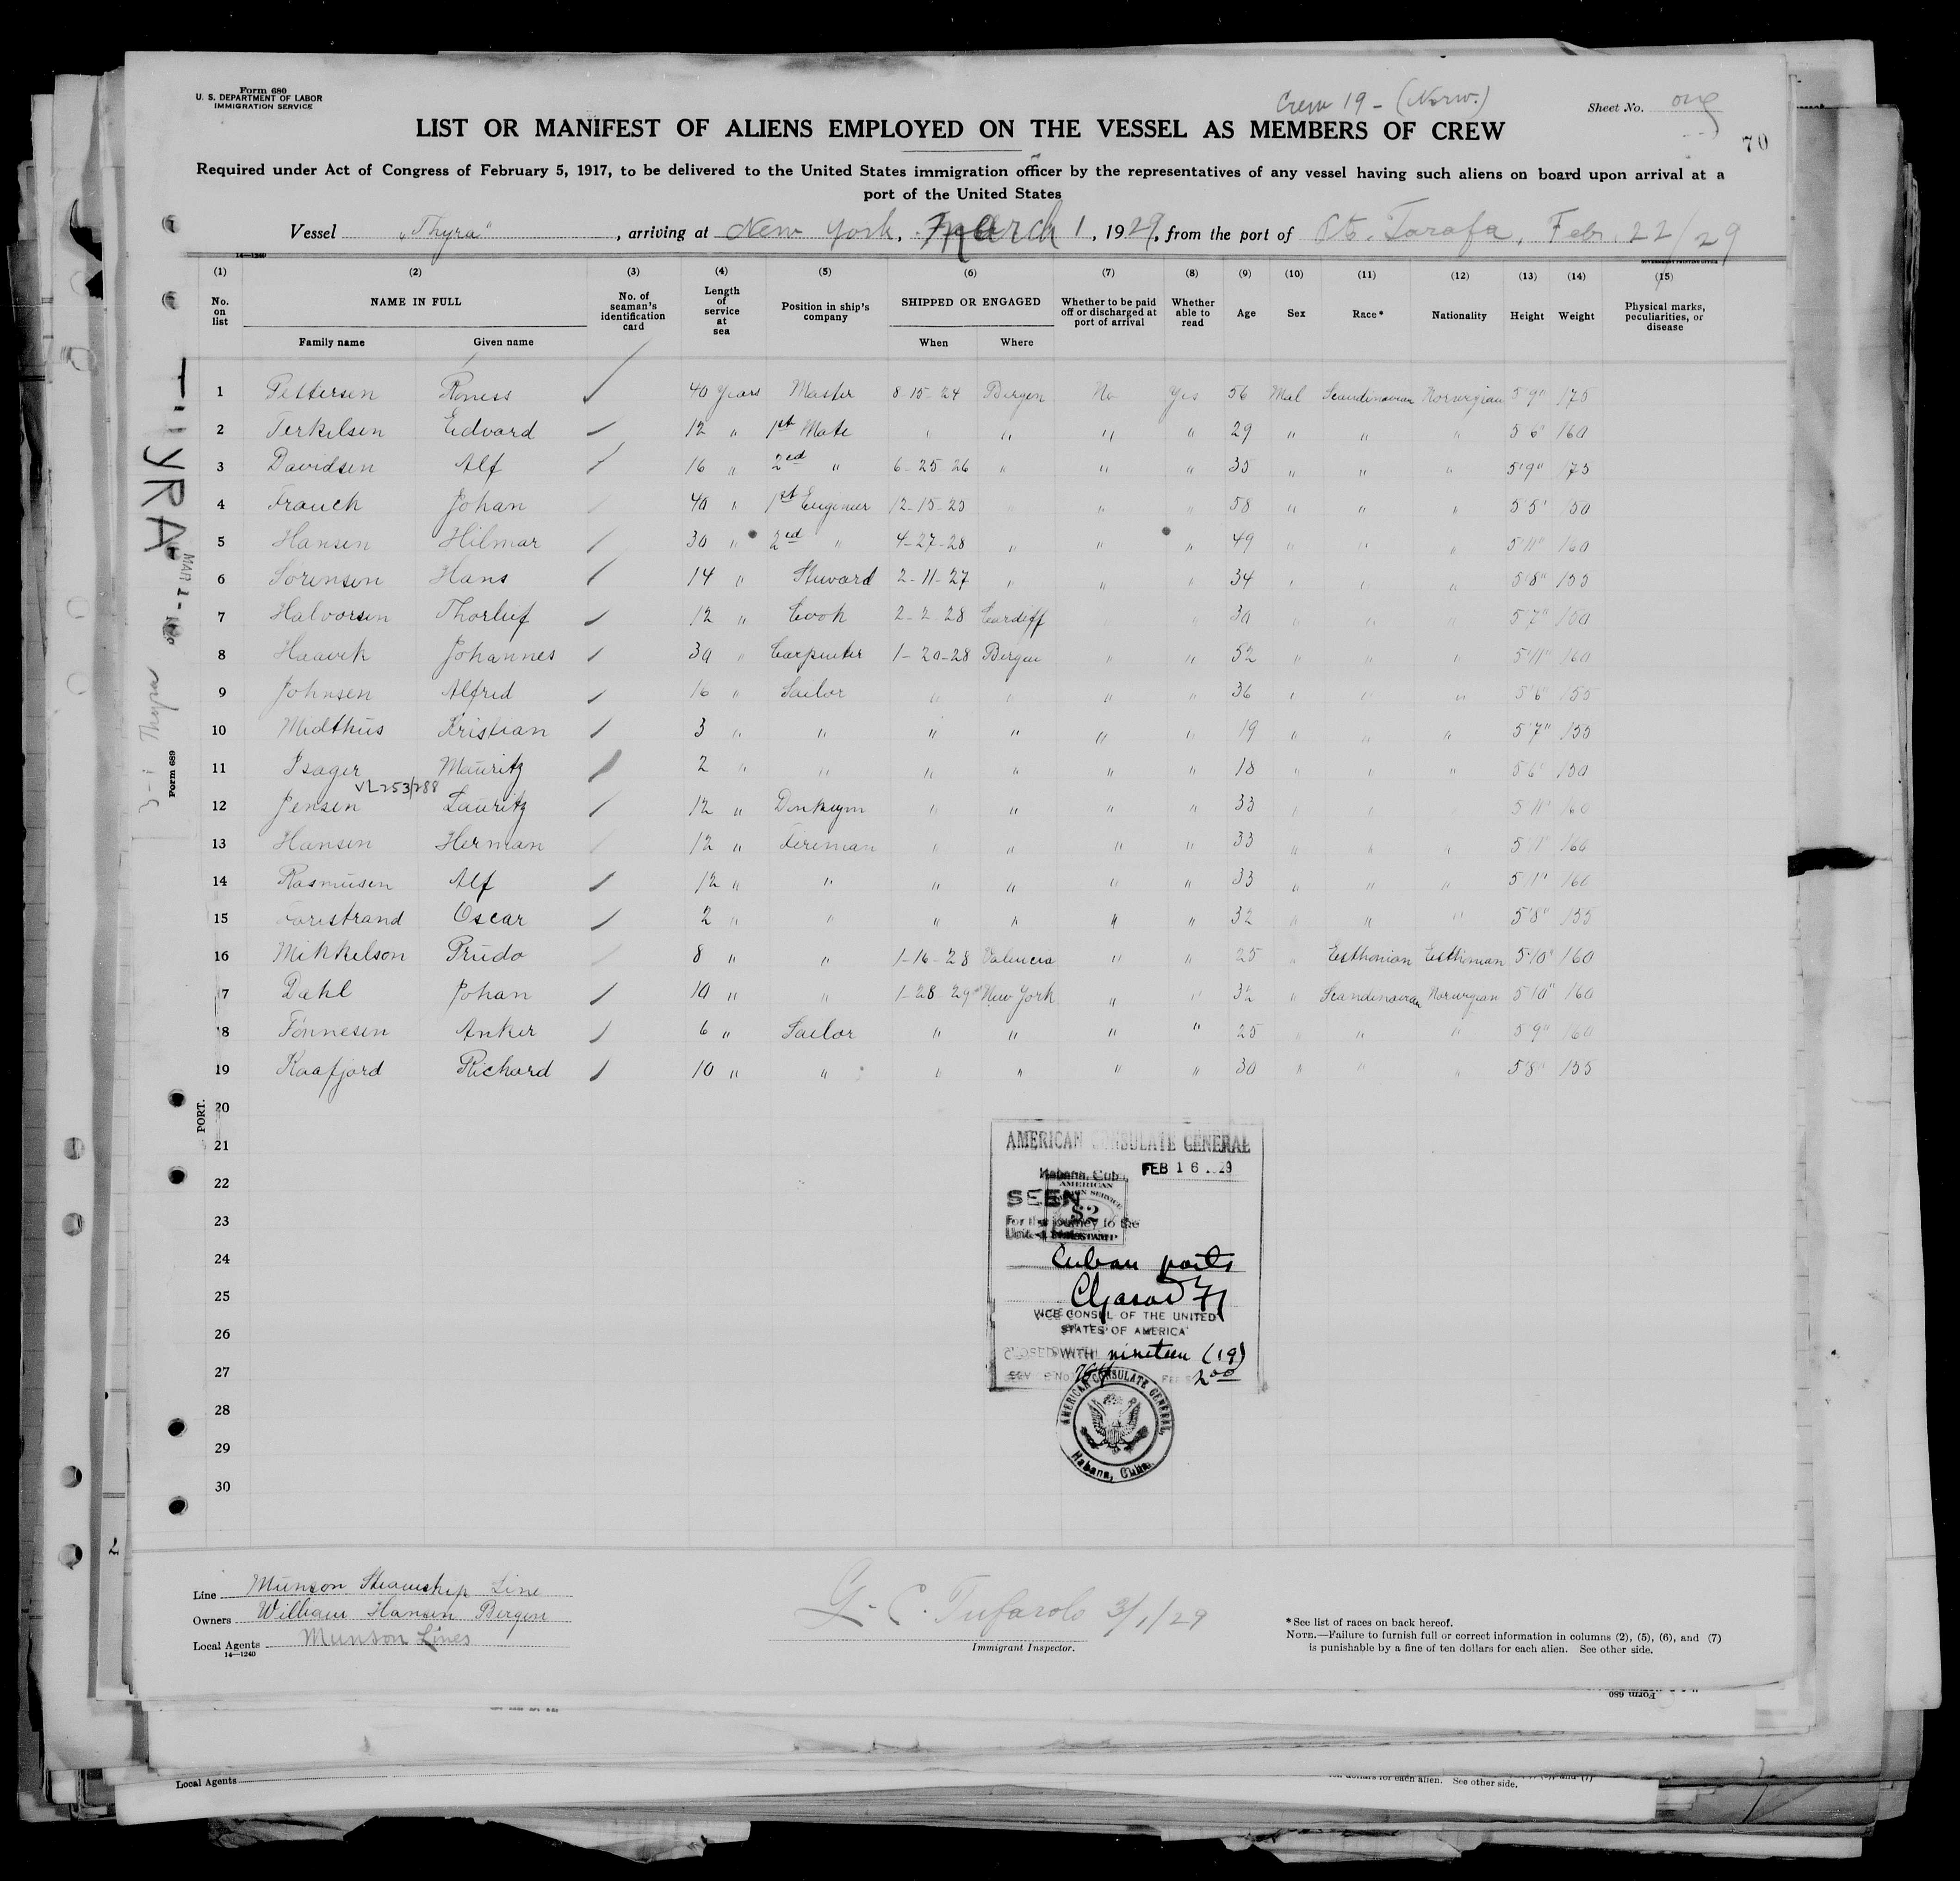 Form 680
U. S. DEPARTMENT OF LABOR
IMMIGRATION SERVICE
Crew 19 - (Norw.)
Sheet No. one
70
LIST OR MANIFEST OF ALIENS EMPLOYED ON THE VESSEL AS MEMBERS OF CREW
Required under Act of Congress of February 5, 1917, to be delivered to the United States immigration officer by the representatives of any vessel having such aliens on board upon arrival at a
port of the United States
Vessel "Thyra", arriving at New York, March 1, 1929, from the port of Pt. Tarafa, Feb. 22/29
14—1240
GOVERNMENT PRINTING OFFICE
(1) (2) (3) (4) (5) (6) (7) (8) (9) (10) (11) (12) (13) (14) (15)
No. on list NAME IN FULL No. of seaman's identification card Length of service at sea Position in ship's company SHIPPED OR ENGAGED Whether to be paid off or discharged at port of arrival Whether able to read Age Sex Race* Nationality Height Weight Physical marks, peculiarities, or disease
Family name Given name When Where
1 Pettersen Roness 40 years Master 8-15-24 Bergen No Yes 56 Mal Scandinavian Norwegian 5'9" 175
2 Terkilsen Edvard 12 " 1st Mate " " " " 29 " " " 5'6 160
3 Davidsen Alf 16 " 2ed " 6-25-26 " " " 35 " " " 5'9" 175
4 Franck Johan 40 " 1st Engineer 12-15-25 " " " 58 " " " 5'5' 150
5 Hansen Hilmar 30 " 2ed " 4-27-28 " " " 49 " " " 5'11" 160
6 Sorensen Hans 14 " Stuvard 2-11-27 " " " 34 " " " 5'8" 155
7 Halvorsen Thorluf 12 " Cook 2-2-28 Cardiff " " 30 " " " 5'7" 150
8 Haavik Johannes 30 " Carpenter 1-20-28 Bergen " " 52 " " " 5'11" 160
9 Johnsen Alfred 16 " Sailor " " " " 36 " " " 5'6" 155
10 Midthus Kristian 3 " " " " " " 19 " " " 5'7" 155
11 Isager Mauritz 2 " " " " " " 18 " " " 5'6" 150
VL253/288
12 Jensen Lauritz 12 " Donkeym " " " " 33 " " " 5'11" 160
13 Hansen Herman 12 " Fireman " " " " 33 " " " 160
14 Rasmusen Alf 12 " " " " " " 33 " " " 160
15 Oscar 2 " " " " " " 32 " " " 5'8" 155
16 Mikkelson Prudo 8 " " 1-16-28 Valencia " " 25 " Esthonian Esthonian 5'10" 160
17 Dahl Johan 10 " " 1-28-29 New York " " 32 " Scandinavian Norwegian 5'10" 160
18 Tonnesen Anker 6 " Sailor " " " " 25 " " " 5'9" 160
19 Kaafjord Richard 10 " " " " " " 30 " " " 5'8" 155
20
21
22
23
24
25
26
27
28
29
30
THYRA
3-1 Thyra
Form 689
PORT.
AMERICAN CONSULATE GENERAL
Habana, Cuba, FEB 16 1929
SEEN
For the journey to the
United States
AMERICAN
FOREIGN SERVICE
$2
Cuban ports
VICE CONSUL OF THE UNITED
STATES OF AMERICA
CLOSED WITH nineteen (19)
2.00
AMERICAN CONSULATE GENERAL
Habana, Cuba.
Line Munson Steamship Line
Owners William Hansen Bergen
Local Agents Munson Lines
14—1240
G. C. Tufarolo 3/1/29
Immigrant Inspector.
*See list of races on back hereof.
NOTE.—Failure to furnish full or correct information in columns (2), (5), (6), and (7)
is punishable by a fine of ten dollars for each alien. See other side.
Form 680
Local Agents
dollars for each alien. See other side.